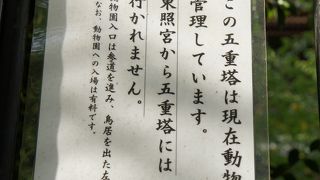 この五重塔は現在動物
管理しています。
東照宮から五重塔には
行かれません。
なお、動物園への入場は有料です。
物園入口は参道を進み、鳥居を出た左